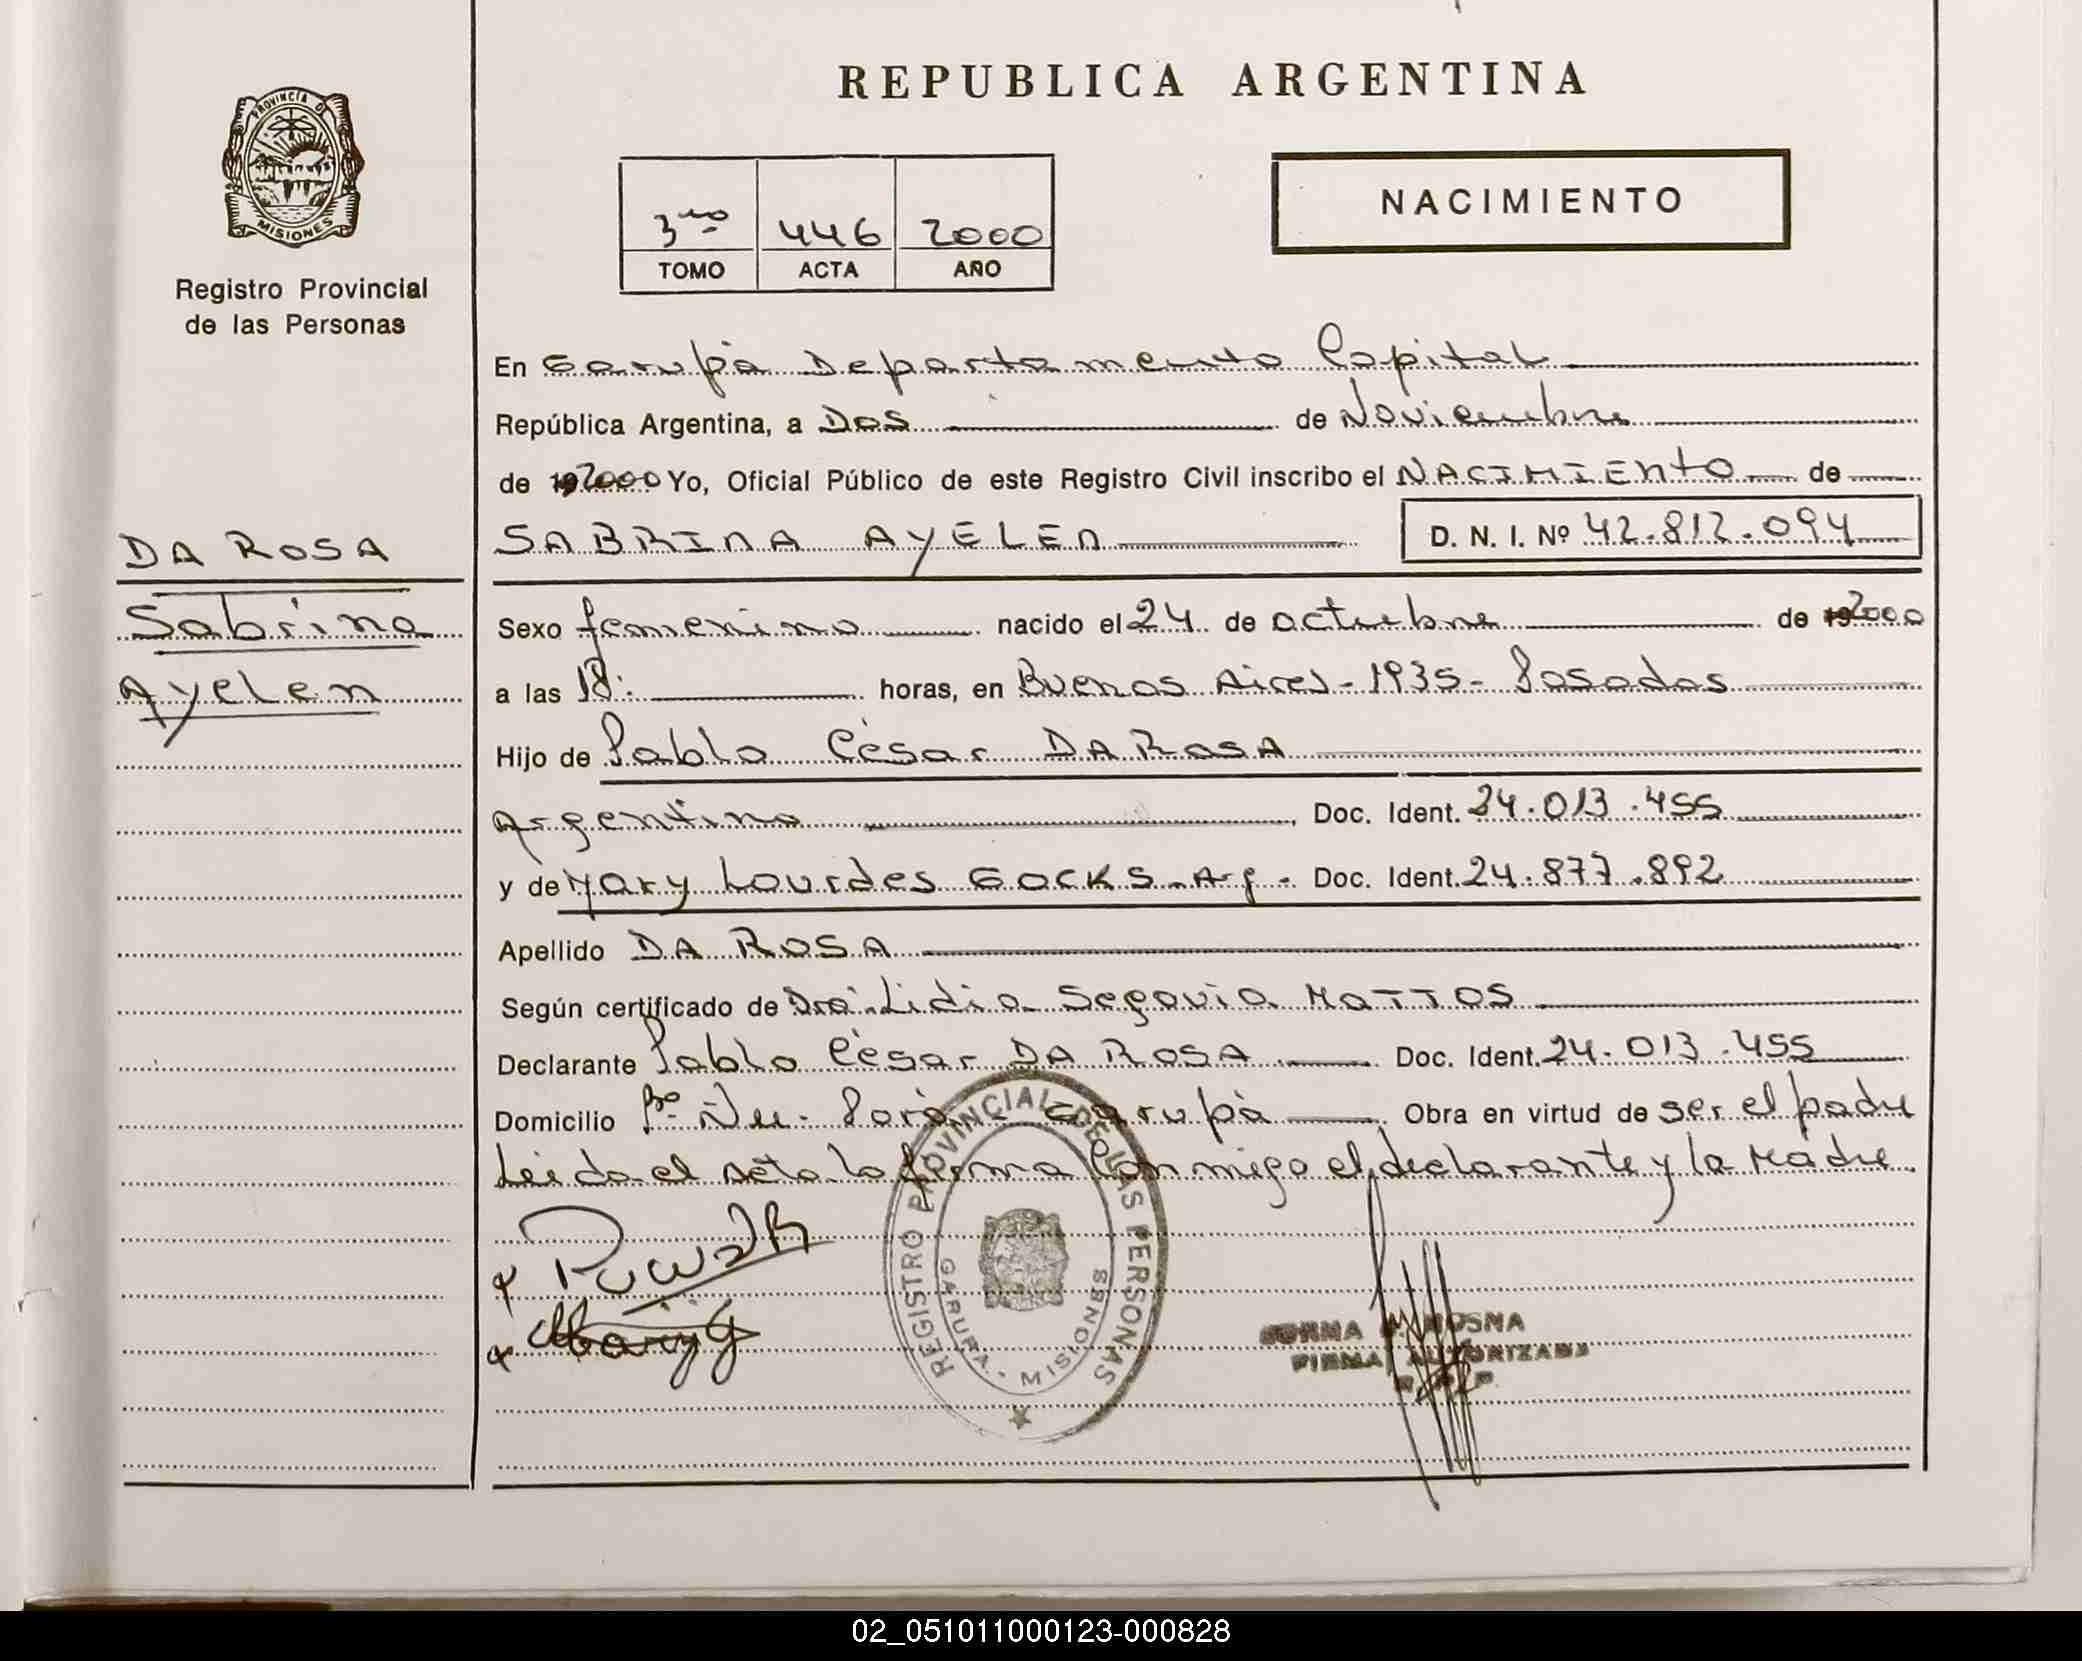 REPUBLICA ARGENTINA
PROVINCIA D
MISIONES
Registro Provincial
de las Personas
3ro 446 2000
TOMO ACTA AÑO
NACIMIENTO
En Garupá Departamento Capital
República Argentina, a Dos de Noviembre
de 192000 Yo, Oficial Público de este Registro Civil inscribo el NACIMIENTO de
DA ROSA
Sabrina
Ayelen
SABRINA AYELEN D. N. I. Nº 42.812.094
Sexo femenino nacido el 24 de octubre de 192000
a las 18: horas, en Buenos Aires - 1935 - Posadas
Hijo de Pablo César DA ROSA
Argentino Doc. Ident. 24.013.455
y de Mary Lourdes GOCKS - Arg. Doc. Ident. 24.877.892
Apellido DA ROSA
Según certificado de Dra. Lidia Segovia MATTOS
Declarante Pablo César DA ROSA Doc. Ident. 24.013.455
Domicilio Bº Ñu - Porá - Garupá Obra en virtud de ser el padre
Leída el acta la firma conmigo el declarante y la Madre
REGISTRO PROVINCIAL DE LAS PERSONAS
GARUPA - MISIONES
Mary G
NORMA
FIRMA AUTORIZADA
02_051011000123-000828